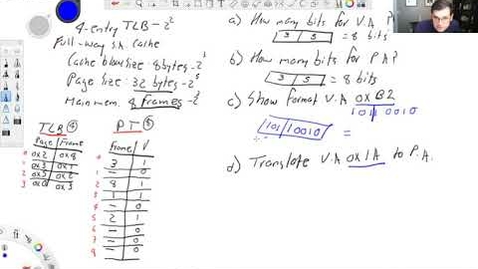 4-entry TLB - 2²
Full-way s.a. cache
Cache block size 8 bytes - 2³
Page Size: 32 bytes - 2⁵
Main mem. 8 frames - 2³
TLB 4
Page Frame
0 0x2 0x8
1 0x3 0x1
2 0x5 0x2
3 0x0 0x3
PT
Frame V
0 3 1
1 - 0
2 8 1
3 1 1
4 - 0
5 2 1
6 - 0
7 - 0
8 - 0
a) How many bits for V.A?
3 5 = 8 bits
b) How many bits for P.A?
3 5 = 8 bits
c) Show format V.A 0xB2
1011 0010
101 10010 =
d) Translate V.A 0x1A to P.A.